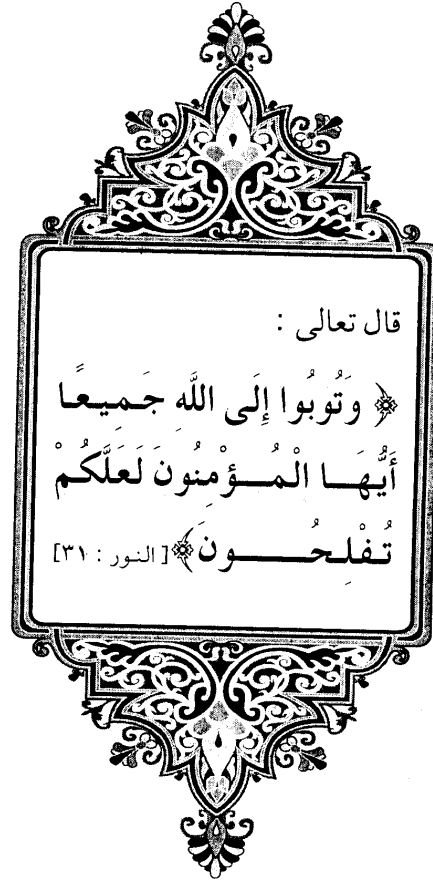 قال تعالى :
﴿ وَتُوبُوا إِلَى اللَّهِ جَمِيعًا
أَيُّهَا الْمُؤْمِنُونَ لَعَلَّكُمْ
تُفْلِحُونَ﴾ [ النور : ٣١]